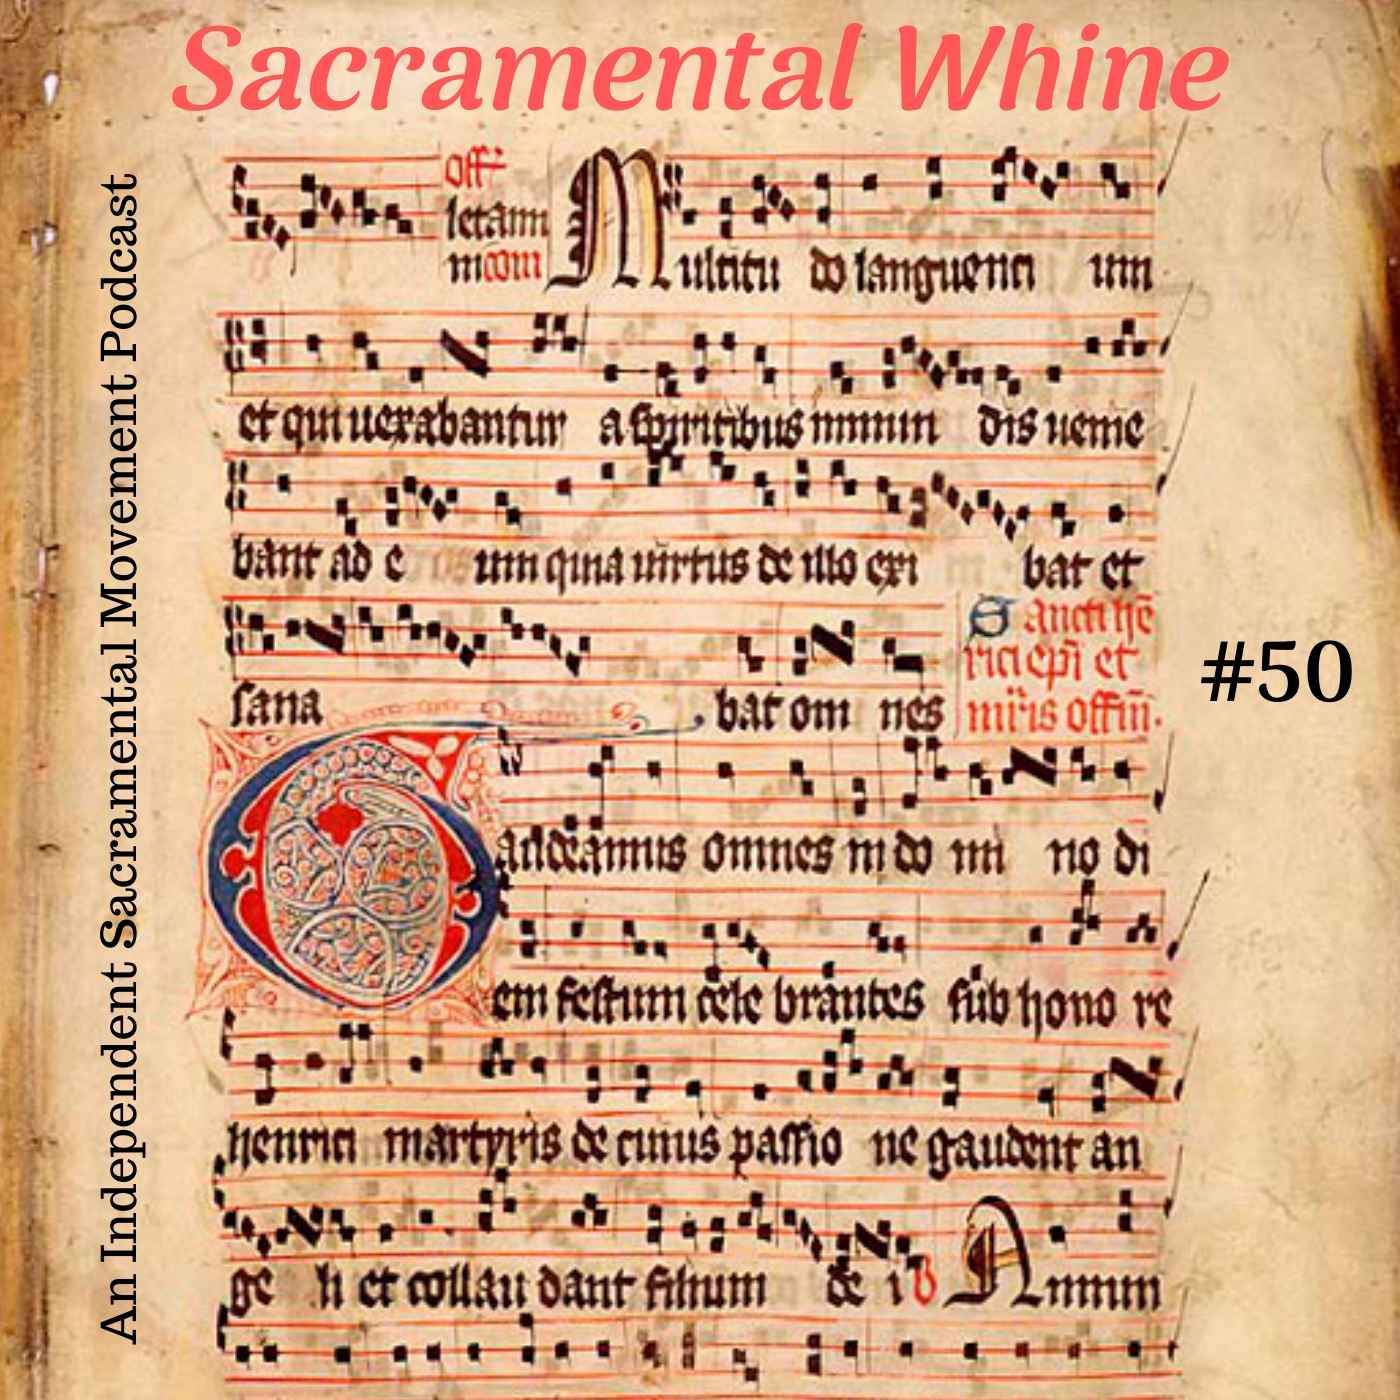 Sacramental Whine
An Independent Sacramental Movement Podcast
#50
off
letann
in com
Multitu do languenti um
et qui uexabantur a spiritibus inmun dis uenie
bant ad e um quia uirtus de illo exi bat et
sana bat om nes
Sancti hē
rici epi et
mr̄is offm̄.
Gaudeamus omnes in do mi no di
em festum cele brantes sub hono re
henrici martyris de cuius passio ne gaudent an
ge li et collau dant filium de i
Annum